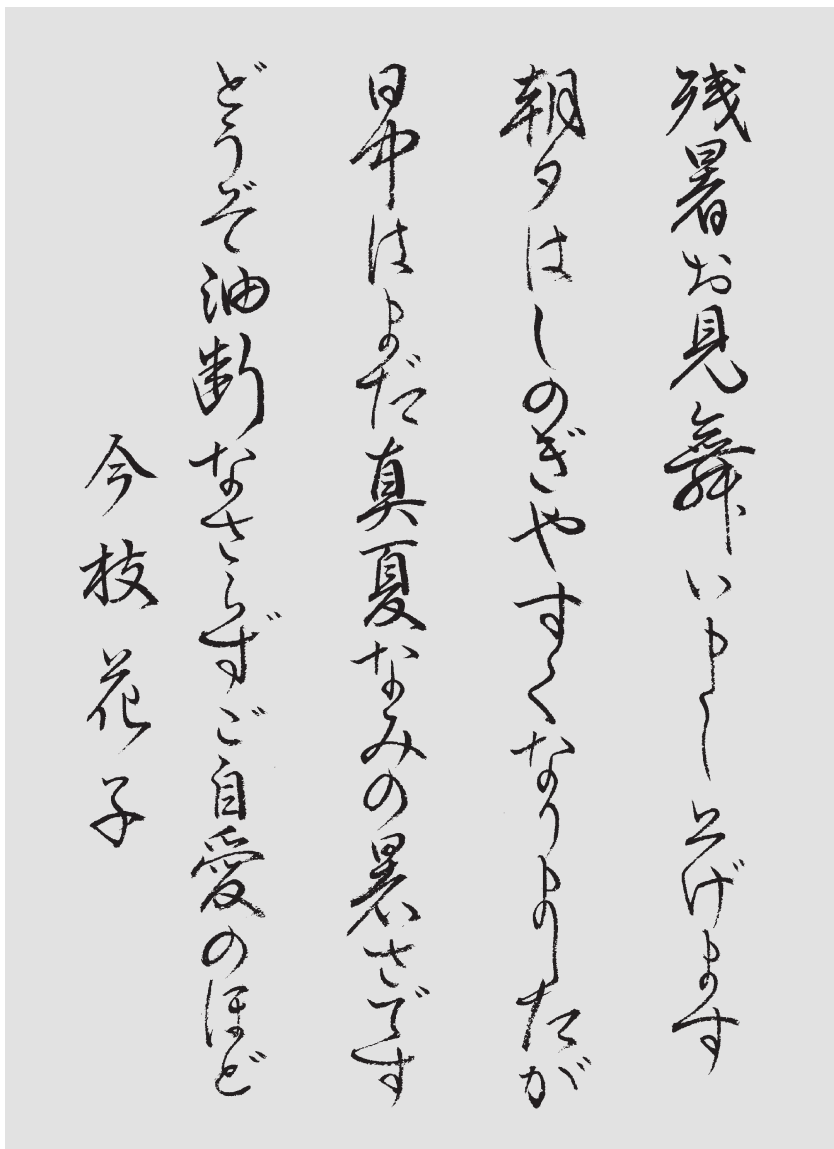 残暑お見舞い申し上げます
朝夕はしのぎやすくなりましたが
日中はまだ真夏なみの暑さです
どうぞ油断なさらずご自愛のほど
今枝花子